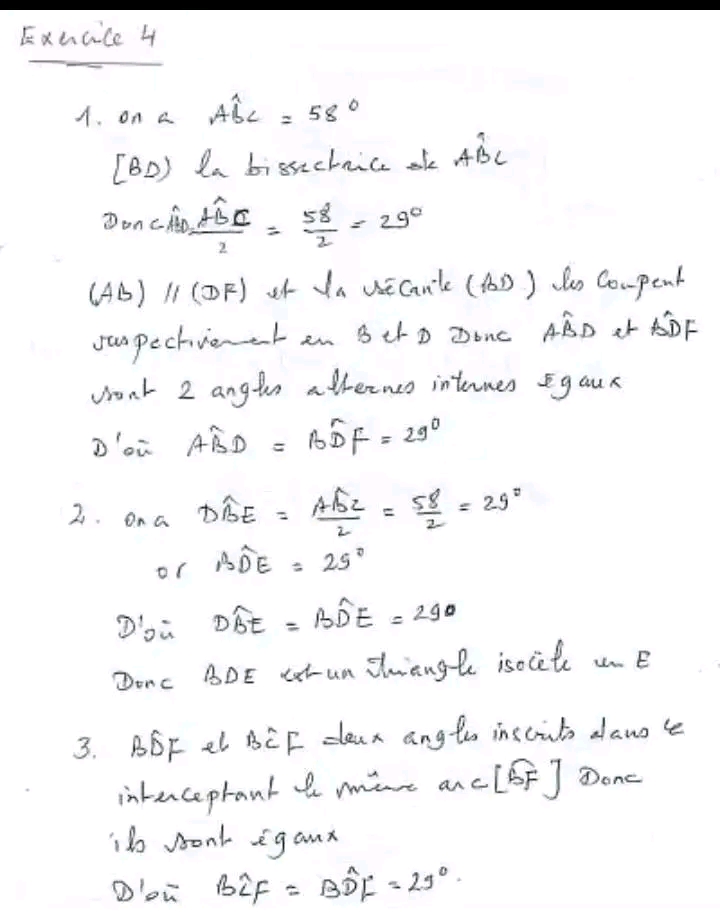 Exercice 4
1. on a AB̂C = 58°
[BD) la bissectrice de AB̂C
Donc AB̂D = AB̂C/2 = 58/2 = 29°
(AB) // (DF) et la sécante (BD) les Coupent
respectivement en B et D Donc AB̂D et BD̂F
sont 2 angles alternes internes Egaux
D'où AB̂D = BD̂F = 29°
2. on a DB̂E = AB̂C/2 = 58/2 = 29°
or BD̂E = 29°
D'où DB̂E = BD̂E = 29°
Donc BDE est un triangle isocèle en E
3. BD̂F et BĈF deux angles inscrits dans le
interceptant le même arc [BF] Donc
ils sont égaux
D'où BĈF = BD̂F = 29°.